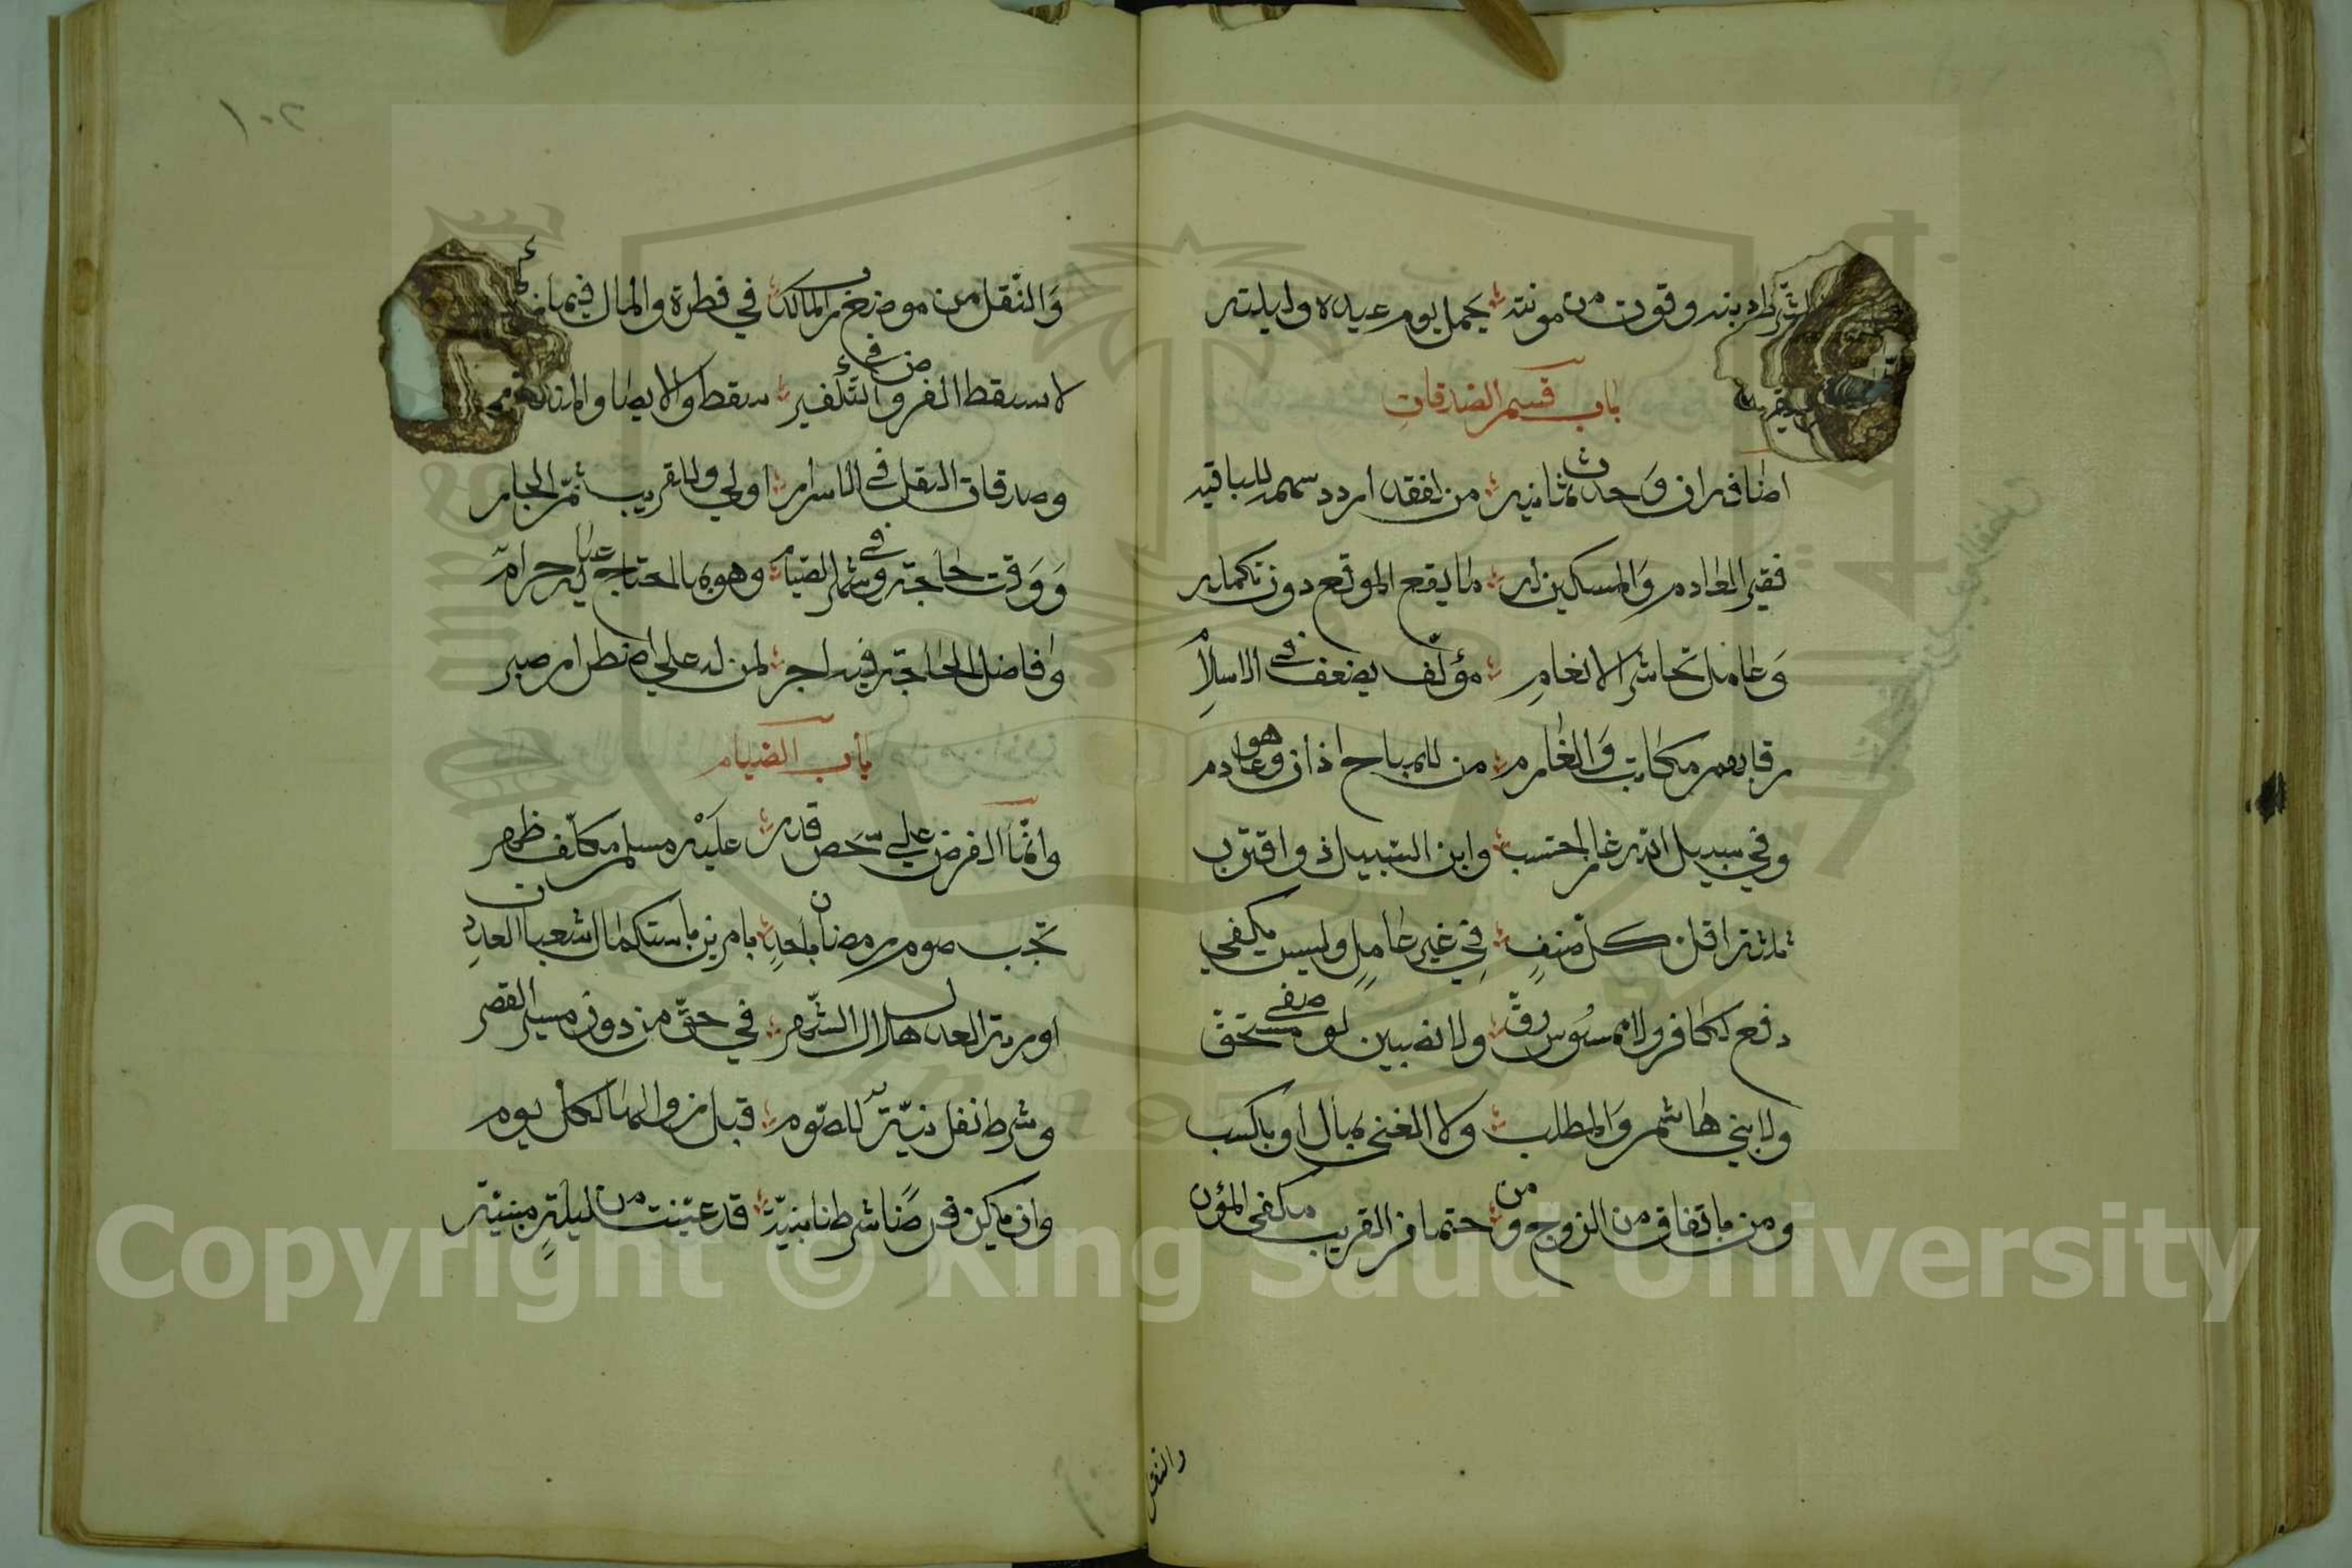 دينه وقوت من مونته يحمل يوم عيده وليلته
باب قسم الصدقات
اصنافه ان وجدت ثمانيه من يفقد اردد سهمه للباقيه
فقير العادم والمسكين له ما يقع الموقع دون تكمله
وعامل كحاشر الانعام مؤلف يضعف في الاسلام
رقابهم مكاتب والغارم من للمباح اذان وهو عادم
وفي سبيل الله غاز احتسب وابن السبيل ذو اقترب
ثلثة اقل كل صنف في غير عامل وليس يكفي
دفع لكافر ولا ممسوس رق ولا نصيبين لوصفي مستحق
ولا بني هاشم والمطلب ولا الغني بمال او بكسب
ومن بانفاق من الزوج ومن حتما من القريب مكفي المؤن
والنقل
١٠٢
والنقل من موضع رب المالك في فطرة والمال فيما
لا يسقط الفرض وفي التكفير يسقط والايصا
وصدقات النفل في الاسرار اولي وللقريب ثم الجار
ووقت حاجة وفي شهر الصيام وهو بما احتاج عيال له حرام
وفاضل الحاجة فيه اجر لمن له علي اضطرار صبر
باب الصيام
وانما الفرض علي شخص قدر عليه مسلم مكلف طهر
تجب صوم رمضان باحد بامرين باستكمال شعبان العدد
او رية العدل هلال الشهر في حق من دون مسير القصر
وشرط نفل نية للصوم قبل زوالها لكل يوم
وان يكن فرضا شرطنا نيه قد عينت من ليلة مبيته
Copyright © King Saud University